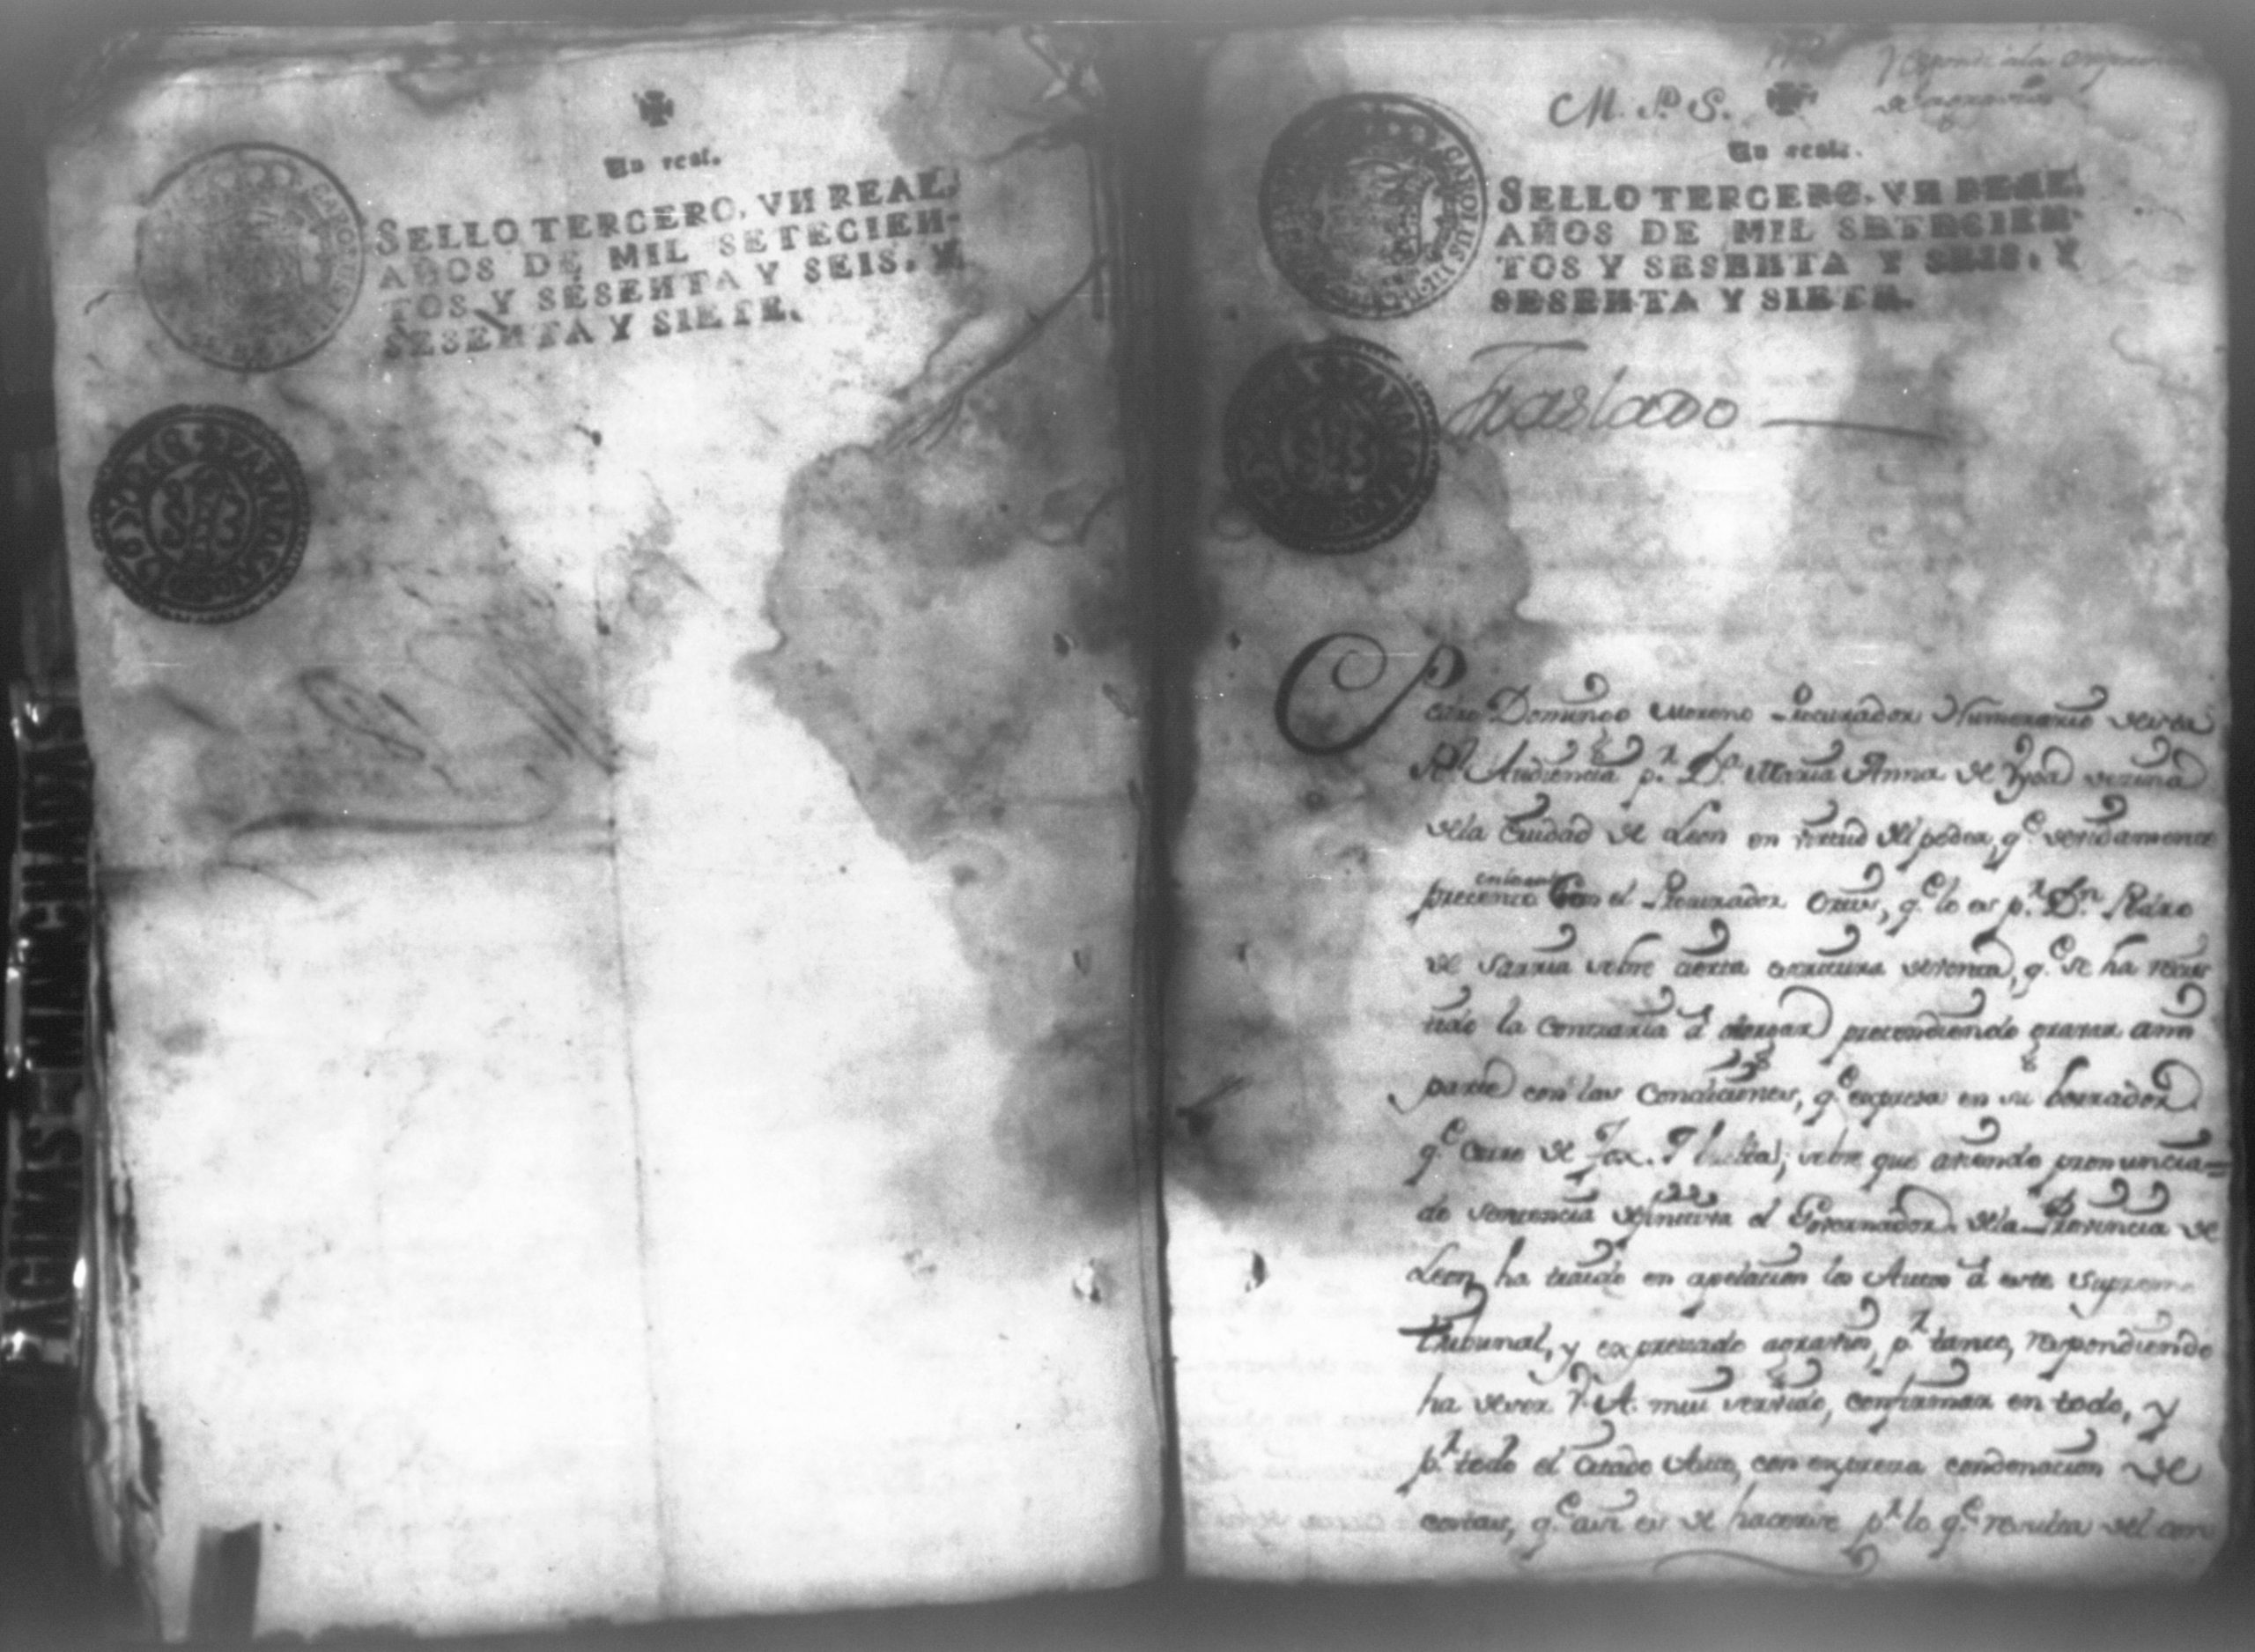 Un real.
SELLO TERCERO, VN REAL,
AÑOS DE MIL SETECIEN-
TOS Y SESENTA Y SEIS, Y
SESENTA Y SIETE.
M. P. S.
Responde a la
de agravios
Un real.
SELLO TERCERO, VN REAL,
AÑOS DE MIL SETECIEN-
TOS Y SESENTA Y SEIS, Y
SESENTA Y SIETE.
CAROLUS III
Traslado
Pedro Domingo Moreno Procurador Numerario de esta
Rl. Audiencia pr. Da. Maria Anna de vezina
de la Ciudad de Leon en virtud del poder, qe. devidamente
presento con el Procurador qe. lo es pr. Dn. Pedro
de Sarria sobre cierta escritura de venta, qe. se ha resis
tido la contraria â otorgar pretendiendo gravar a mi
parte con las Condiciones, qe. expresa en su borrador
qe. corre de fox. vuelta; sobre que aviendo pronuncia=
do sentencia difinitiva el Governador de la Provincia de
Leon, ha traido en apelacion los Autos â este Supremo
Tribunal, y expresado agravios, pr. tanto, respondiendo
ha de ser V. A. mui servido, confirmar en todo, y
pr. todo el citado Auto, con expresa condenacion de
costas, qe. asi es de hacerse pr. lo qe. resulta del com